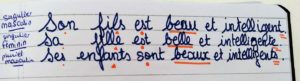 singulier masculin Son fils est beau et intelligent
singulier féminin sa fille est belle et intelligente
pluriel masculin ses enfants sont beaux et intelligents